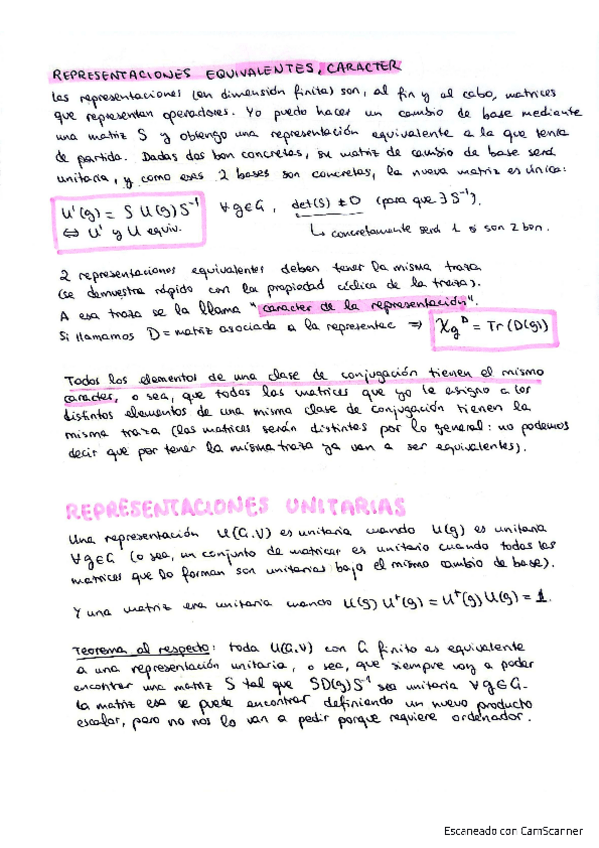 REPRESENTACIONES EQUIVALENTES, CARACTER
Las representaciones (en dimensión finita) son, al fin y al cabo, matrices
que representan operadores. Yo puedo hacer un cambio de base mediante
una matriz S y obtengo una representación equivalente a la que tenía
de partida. Dadas dos bon concretas, su matriz de cambio de base será
unitaria, y como esas 2 bases son concretas, la nueva matriz es única:
U'(g) = S U(g) S⁻¹ ∀g∈G, det(S) ≠ 0 (para que ∃ S⁻¹).
⇔ U' y U equiv.
↳ concretamente será 1 si son 2 bon.
2 representaciones equivalentes deben tener la misma traza
(se demuestra rápido con la propiedad cíclica de la traza).
A esa traza se la llama "caracter de la representación".
Si llamamos D = matriz asociada a la representac ⇒ χg^D = Tr(D(g))
Todos los elementos de una clase de conjugación tienen el mismo
caracter, o sea, que todas las matrices que yo le asigno a los
distintos elementos de una misma clase de conjugación tienen la
misma traza (las matrices serán distintas por lo general: no podemos
decir que por tener la misma traza ya van a ser equivalentes).
REPRESENTACIONES UNITARIAS
Una representación U(G,V) es unitaria cuando U(g) es unitaria
∀g∈G (o sea, un conjunto de matrices es unitario cuando todas las
matrices que lo forman son unitarias bajo el mismo cambio de base).
Y una matriz era unitaria cuando U(g) U⁺(g) = U⁺(g) U(g) = 1.
Teorema al respecto: toda U(G,V) con G finito es equivalente
a una representación unitaria, o sea, que siempre voy a poder
encontrar una matriz S tal que SD(g)S⁻¹ sea unitaria ∀g∈G.
La matriz esa se puede encontrar definiendo un nuevo producto
escalar, pero no nos lo van a pedir porque requiere ordenador.
Escaneado con CamScanner